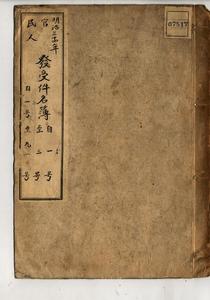 明治三十年
官 發受件名簿 自一号 至二号
民人 自一号 至九一号
07517